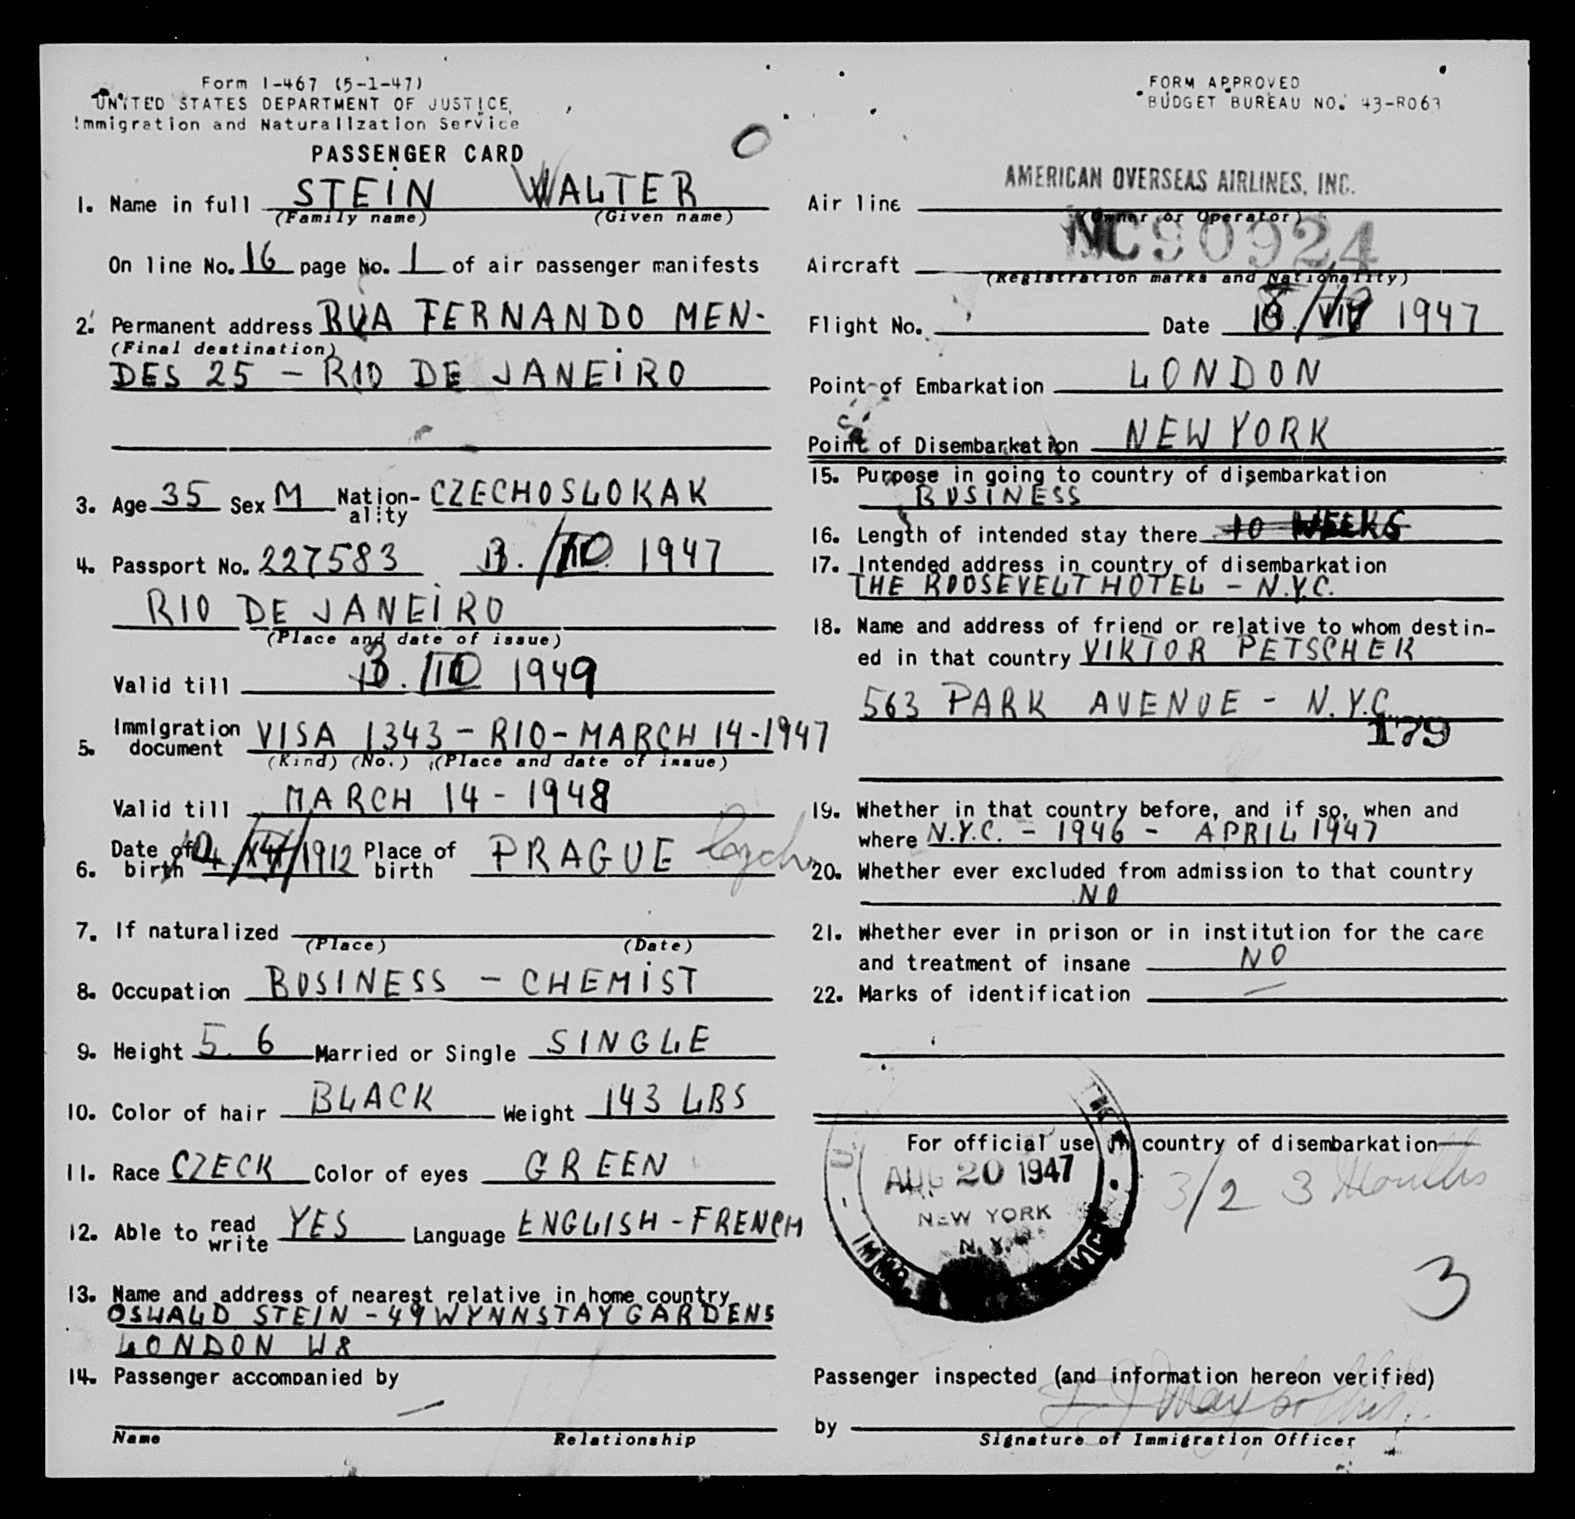 Form I-467 (5-1-47)
UNITED STATES DEPARTMENT OF JUSTICE
Immigration and Naturalization Service
PASSENGER CARD
1. Name in full STEIN WALTER
(Family name) (Given name)
On line No. 16 page No. 1 of air passenger manifests
2. Permanent address RUA FERNANDO MEN-
(Final destination)
DES 25 - RIO DE JANEIRO
3. Age 35 Sex M Nation-ality CZECHOSLOKAK
4. Passport No. 227583 13./III 1947
RIO DE JANEIRO
(Place and date of issue)
Valid till 13./III 1949
5. Immigration document VISA 1343 - RIO - MARCH 14 - 1947
(Kind) (No.) (Place and date of issue)
Valid till MARCH 14 - 1948
6. Date of birth 1912 Place of birth PRAGUE Czech
7. If naturalized
(Place) (Date)
8. Occupation BUSINESS - CHEMIST
9. Height 5. 6 Married or Single SINGLE
10. Color of hair BLACK Weight 143 LBS
11. Race CZECK Color of eyes GREEN
12. Able to read write YES Language ENGLISH - FRENCH
13. Name and address of nearest relative in home country
OSWALD STEIN - 49 WYNNSTAY GARDENS
LONDON W8
14. Passenger accompanied by
—
Name Relationship
FORM APPROVED
BUDGET BUREAU NO. 43-R063
AMERICAN OVERSEAS AIRLINES, INC.
Air line
(Owner or Operator)
NC90924
Aircraft
(Registration marks and Nationality)
Flight No. Date 1947
Point of Embarkation LONDON
Point of Disembarkation NEW YORK
15. Purpose in going to country of disembarkation
BUSINESS
16. Length of intended stay there 10 WEEKS
17. Intended address in country of disembarkation
THE ROOSEVELT HOTEL - N.Y.C.
18. Name and address of friend or relative to whom destin-
ed in that country VIKTOR PETSCHEK
563 PARK AVENUE - N.Y.C.
179
19. Whether in that country before, and if so, when and
where N.Y.C. - 1946 - APRIL 1947
20. Whether ever excluded from admission to that country
NO
21. Whether ever in prison or in institution for the care
and treatment of insane NO
22. Marks of identification —
For official use in country of disembarkation
AUG 20 1947
NEW YORK
N.Y.
3/2 3 Months
3
Passenger inspected (and information hereon verified)
by
Signature of Immigration Officer